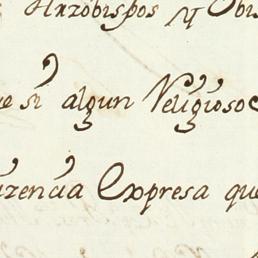 Arzobispos y Obis
e si algun Religioso
izencia Expresa que